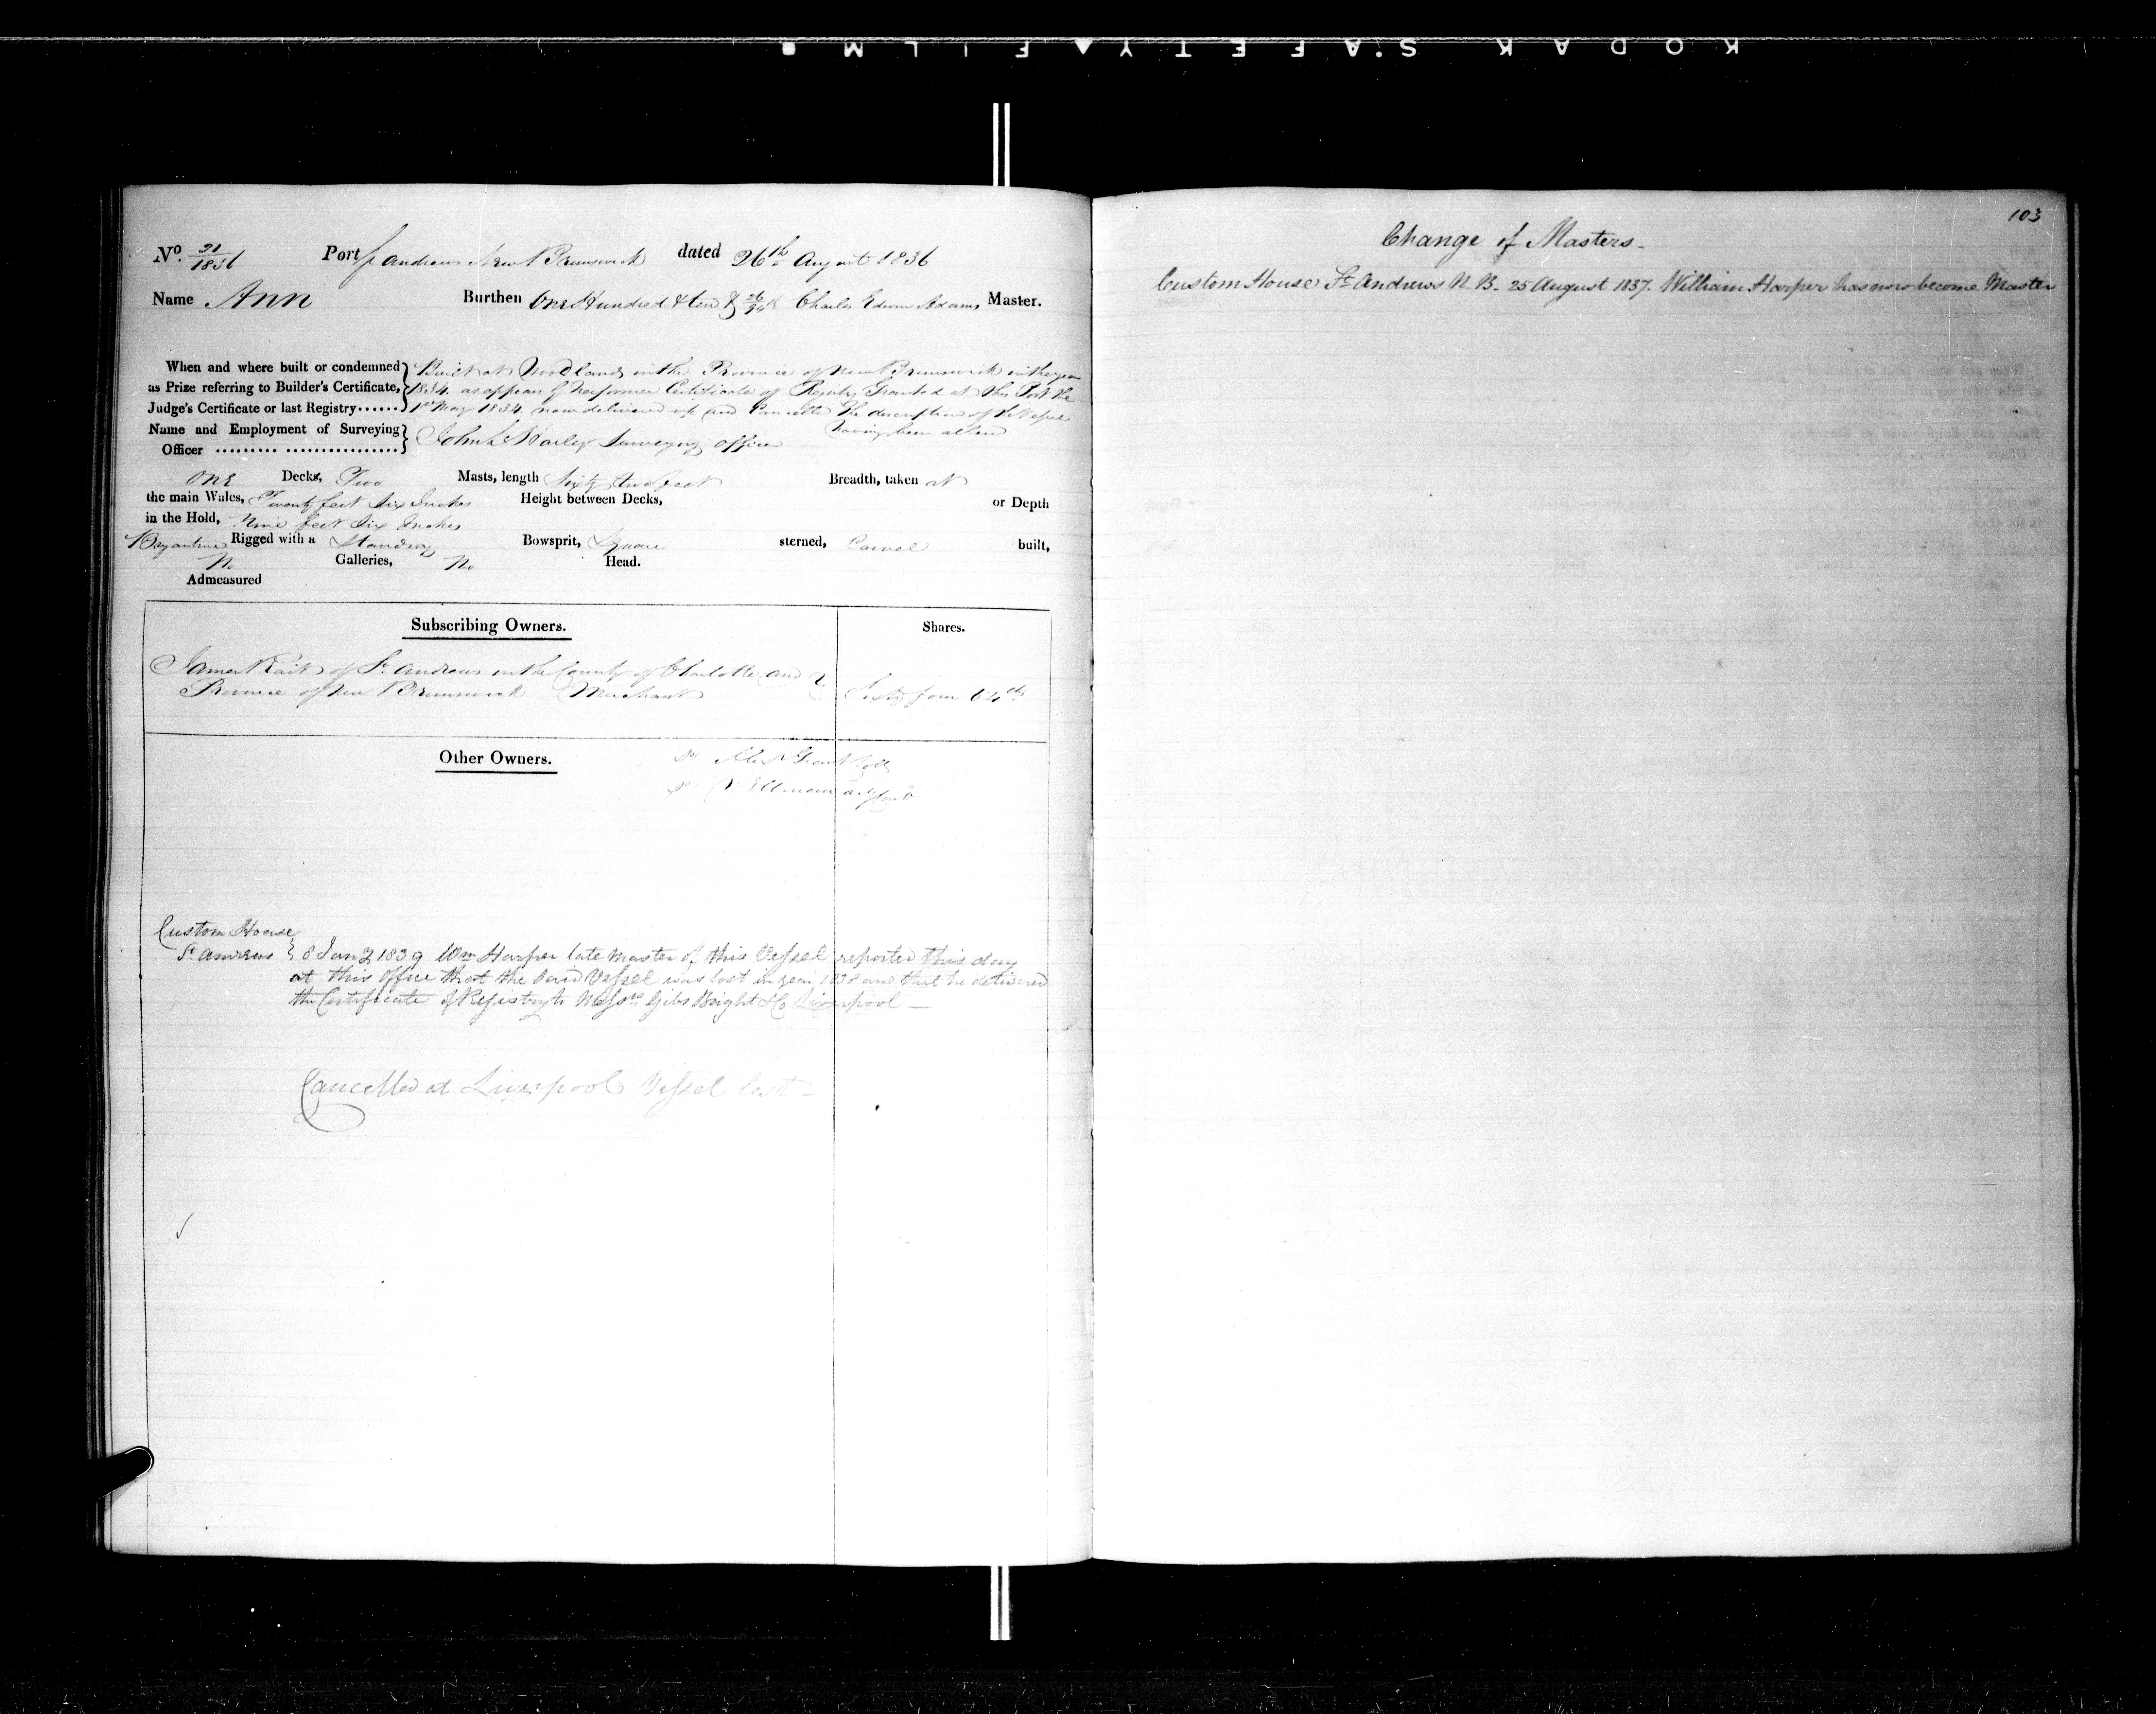 KODAK SAFETY FILM
No. 21/1836 Port St Andrews New Brunswick dated 26th August 1836
Name Ann Burthen One Hundred & ten & 26/94 Charles Edwin Adams Master.
When and where built or condemned as Prize referring to Builder's Certificate, Judge's Certificate or last Registry......
Built at Woodlands in the Province of New Brunswick in the year
1834. as appears by her former Certificate of Registry Granted at this Port the
1st May 1834. now delivered up and Cancelled The description of the Vessel
having been altered
Name and Employment of Surveying Officer
John Surveying officer
One Decks, Two Masts, length Sixty two feet Breadth, taken at
the main Wales, Twenty feet Six Inches Height between Decks, or Depth
in the Hold, Nine feet Six Inches
Brigantine Rigged with a Standing Bowsprit, Square sterned, Carvel built,
No Galleries, No Head.
Admeasured
Subscribing Owners. Shares.
James Rait of St Andrews in the County of Charlotte and
Province of New Brunswick Merchant Sixty four 64ths
Other Owners.
Alexr Grant Coll
Custom House
St Andrews 8 Jany 1839 Wm Harper late Master of this Vessel reported this day
at this Office that the said Vessel was lost in year 1838 and that he delivered
the Certificate of Registry to Messrs Gibs Bright & Co Liverpool —
Cancelled at Liverpool Vessel lost —
103
Change of Masters -
Custom House St Andrews N. B. 25 August 1837. William Harper has now become Master